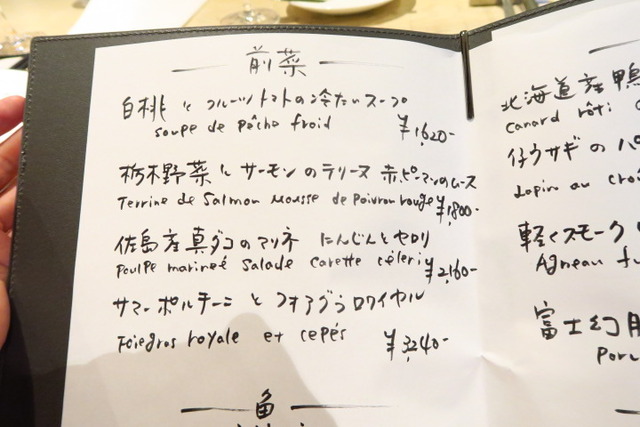 前菜
白桃とフルーツトマトの冷たいスープ
soupe de pêche froid ¥1,620-
栃木野菜とサーモンのテリーヌ 赤ピーマンのムース
Terrine de Salmon mousse de poivron rouge ¥1,800-
佐島産真ダコのマリネ にんじんとセロリ
Poulpe marineé Salade carotte céleri ¥2,160-
サマーポルチーニとフォアグラロワイヤル
Foiegros royale et cepés ¥3,240-
魚
北海道産鴨
Canard rôti
仔ウサギのパ
Lapin au cro
軽くスモーク
Agneau fu
富士幻豚
Porc